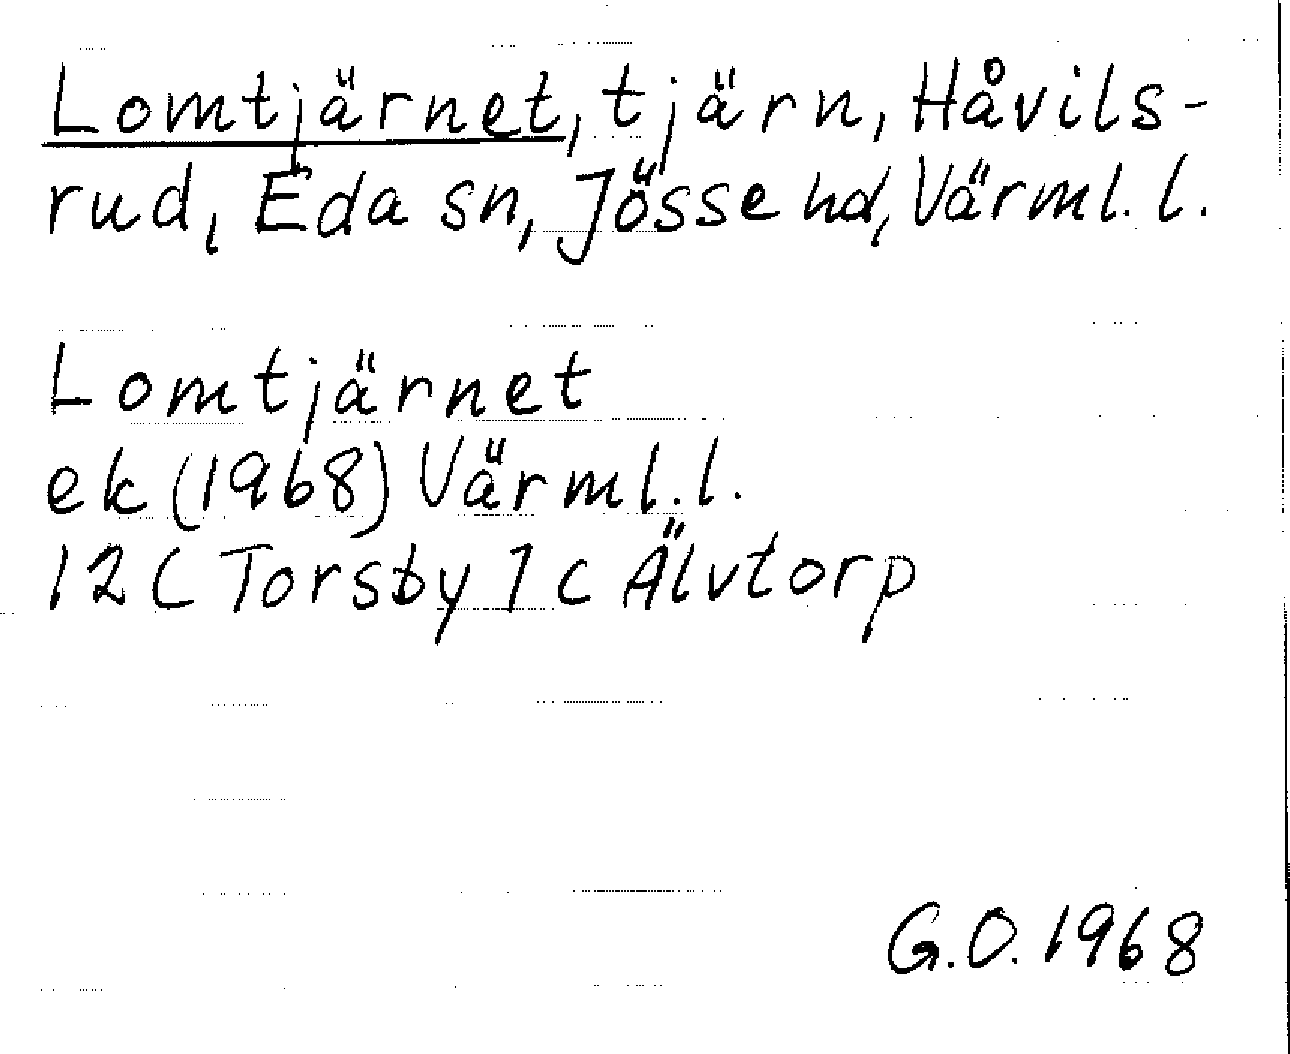 Lomtjärnet, tjärn, Håvils-
rud, Eda sn, Jösse hd, Värml. l.
Lomtjärnet
ek (1968) Värml. l.
12C Torsby 1c Älvtorp
G.O. 1968